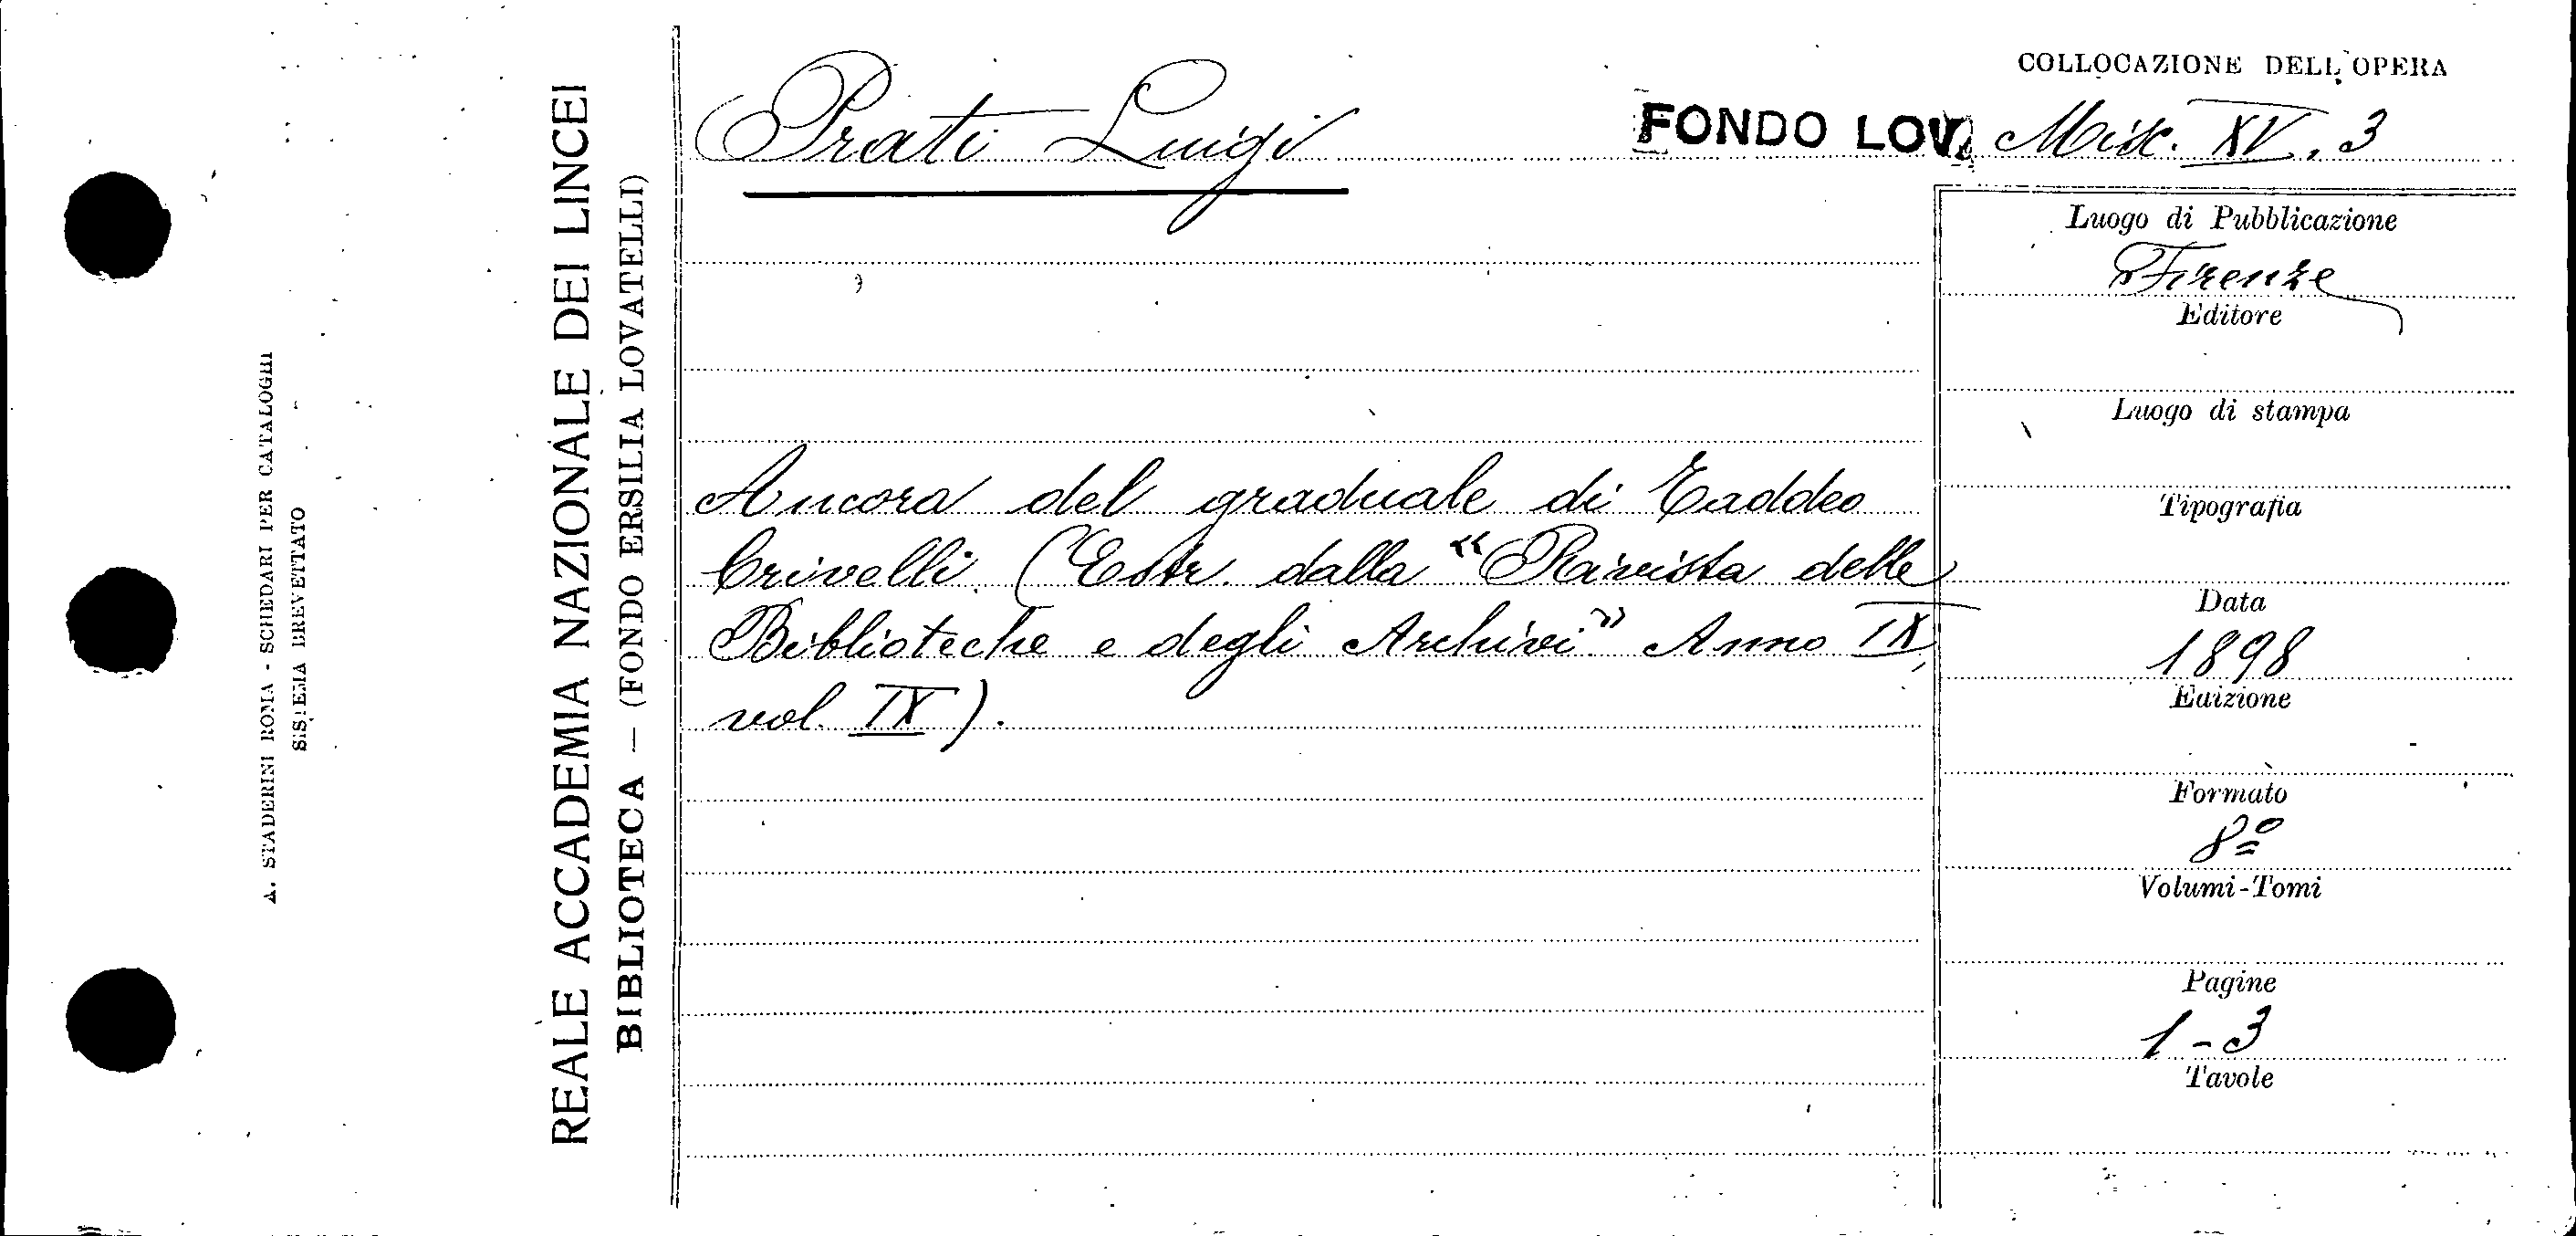 A. STADERINI ROMA - SCHEDARI PER CATALOGHI
SISTEMA BREVETTATO
REALE ACCADEMIA NAZIONALE DEI LINCEI
BIBLIOTECA — (FONDO ERSILIA LOVATELLI)
COLLOCAZIONE DELL'OPERA
Prati Luigi
FONDO LOV. Misc. XV, 3
Ancora del graduale di Taddeo
Crivelli. (Estr. dalla “Rivista delle
Biblioteche e degli Archivi” Anno IX,
vol. IX).
Luogo di Pubblicazione
Firenze
Editore
Luogo di stampa
Tipografia
Data
1898
Edizione
Formato
8º
Volumi-Tomi
Pagine
1-3
Tavole